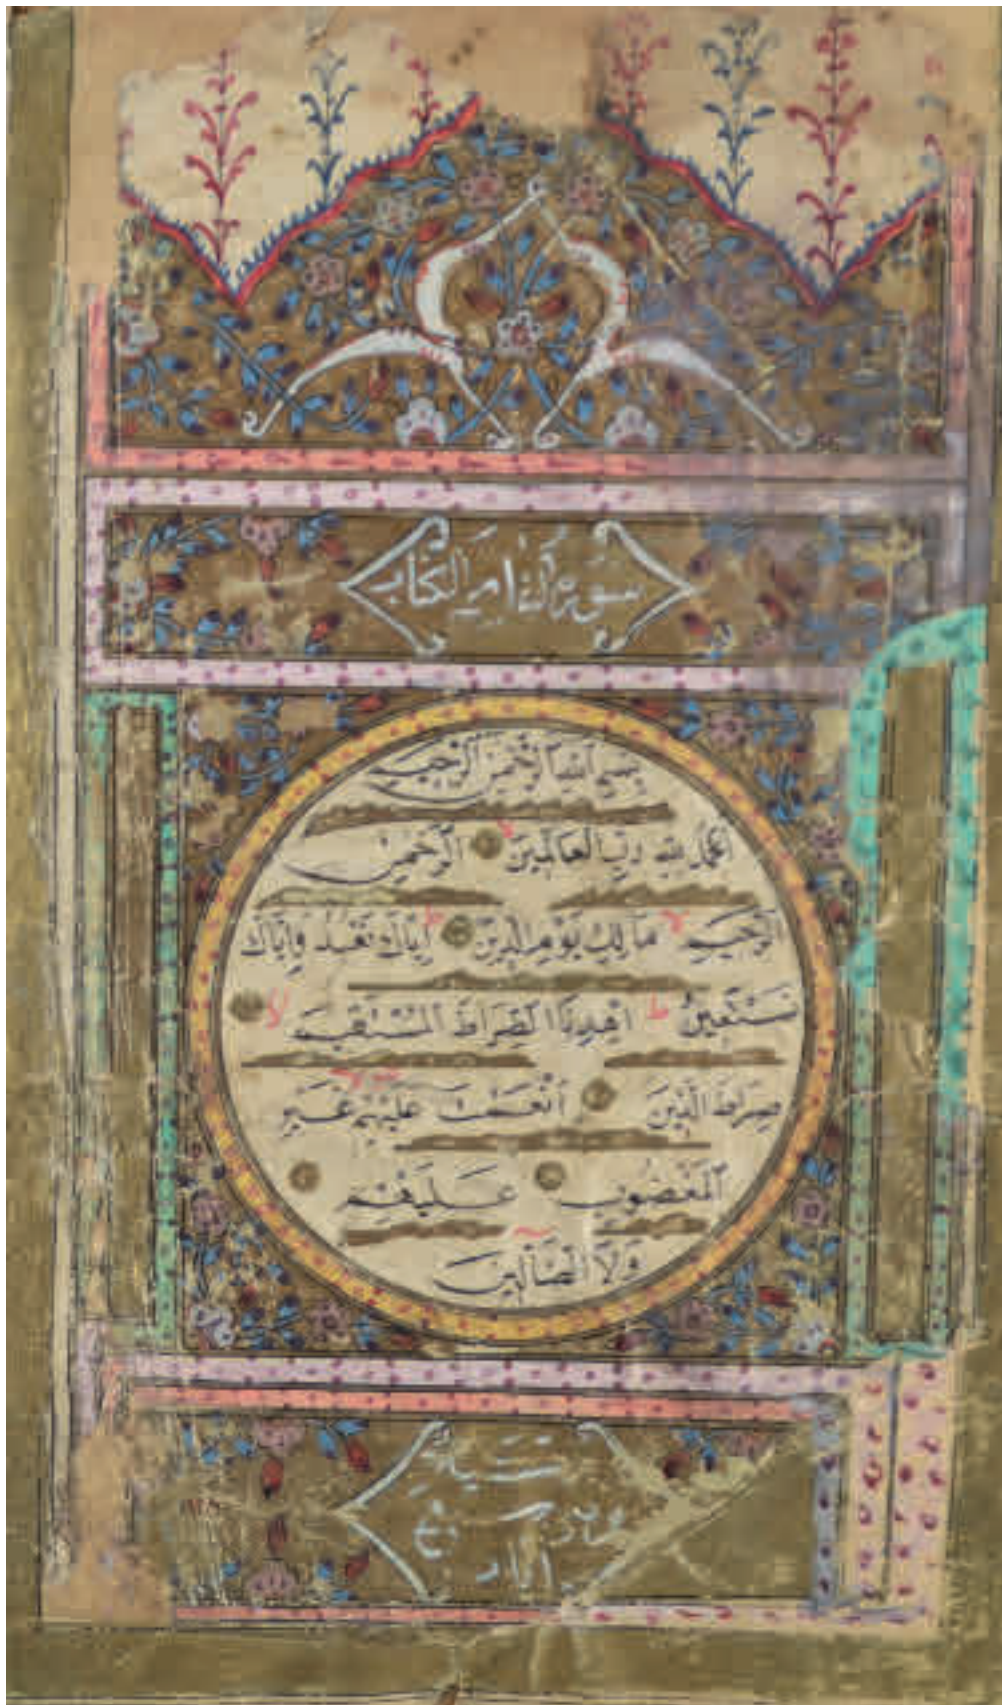 سورة فاتحة الكتاب
بِسْمِ اللهِ الرَّحْمٰنِ الرَّحِيمِ
اَلْحَمْدُ لِلّٰهِ رَبِّ الْعَالَمِينَ لا اَلرَّحْمٰنِ
الرَّحِيمِ لا مَالِكِ يَوْمِ الدِّينِ ط اِيَّاكَ نَعْبُدُ وَاِيَّاكَ
نَسْتَعِينُ ط اِهْدِنَا الصِّرَاطَ الْمُسْتَقِيمَ لا
صِرَاطَ الَّذِينَ اَنْعَمْتَ عَلَيْهِمْ غَيْرِ
الْمَغْضُوبِ عَلَيْهِمْ
وَلَا الضَّالِّينَ